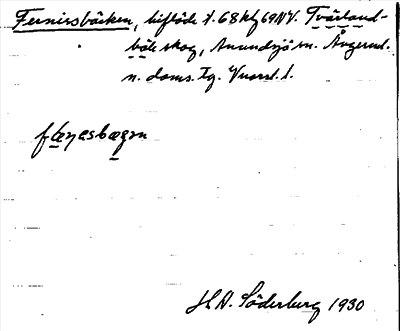 Fernissbäcken, biflöde t. 68 kf 69 NV. Tvärland-
böle skog, Anundsjö sn. Ångerml.
n. doms. Tg.
fæŋəsbægən
H.A. Söderberg 1930